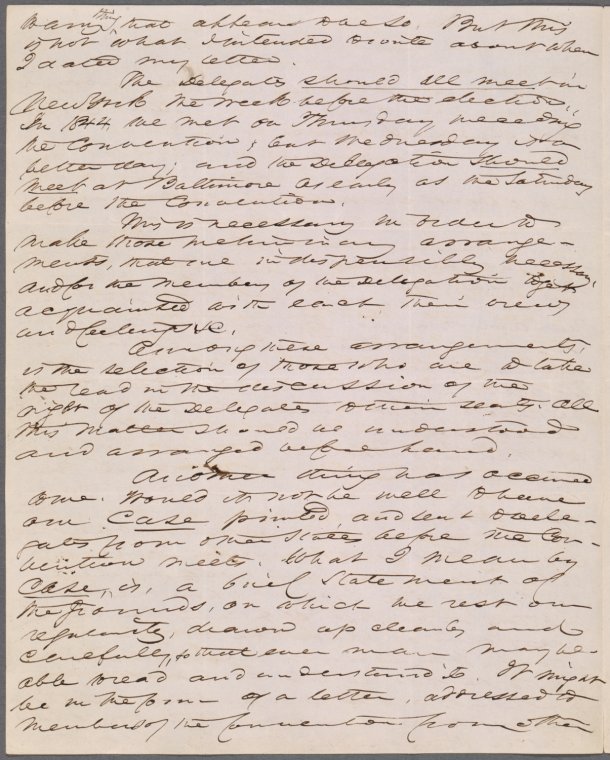 any thing that appears to be so. But this
is not what I intended to write about when
I dated my letter.
The Delegates should all meet in
New York the week before the election.
In 1844 we met on Thursday preceding
the Convention; but Wednesday is a
better day; and the Delegation should
meet at Baltimore as early as the Saturday
before the Convention.
This is necessary in order to
make those preliminary arrange-
ments, that are indispensibly necessary,
and for the members of the Delegation to get
acquainted with each other, their views
and feelings &c.
Among these arrangements,
is the selection of those who are to take
the lead in the discussion of the
right of the Delegates to their seats. All
this matter should be understood
and arranged beforehand.
Another thing has occurred
to me. Would it not be well to have
our Case printed, and sent to dele-
gates from other States before the Con-
vention meets. What I mean by
Case, is, a brief statement of
the grounds, on which we rest our
regularity, drawn up clearly and
carefully, so that every man may be
able to read and understand it. It might
be in the form of a letter, addressed to
members of the Convention from other